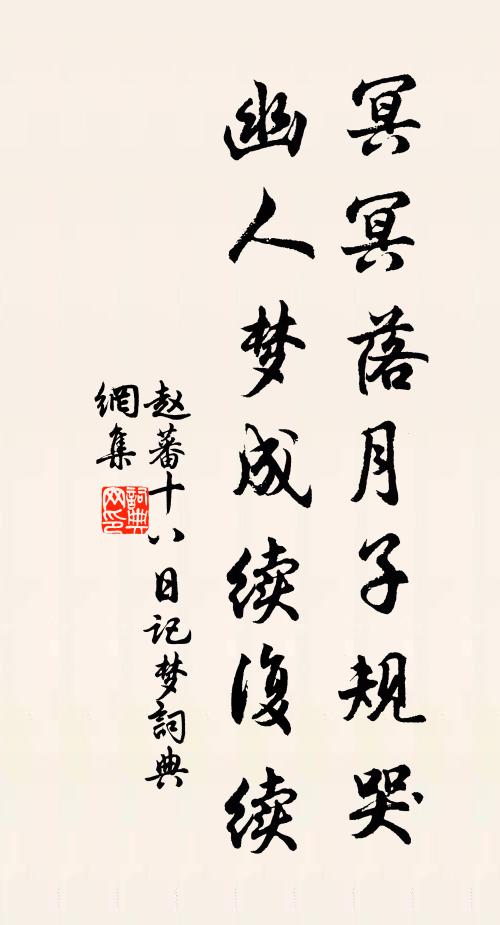 冥冥落月子规哭
幽人梦成续復续
赵蕃十八日记梦詞典
網集
詞典
网印